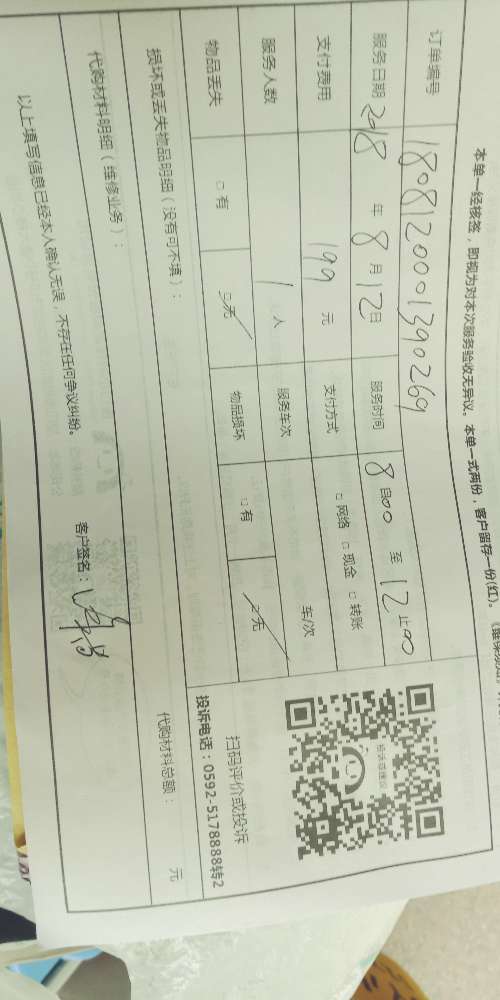 本单一经核签，即视为对本次服务验收无异议。本单一式两份，客户留存一份(红)。
订单编号 1808120001390269
服务日期 2018 年 8 月 12 日 服务时间 8 00 至 12 止00
支付费用 199 元 支付方式 □ 网络 □ 现金 □ 转账
服务人数 1 人 服务车次 车/次
物品丢失 □ 有 □ 无 物品损坏 □ 有 □ 无
损坏或丢失物品明细（没有可不填）：
代购材料明细（维修业务）： 代购材料总额： 元
扫码评价或投诉
投诉电话：0592-5178888转2
以上填写信息已经本人确认无误，不存在任何争议纠纷。 客户签名：